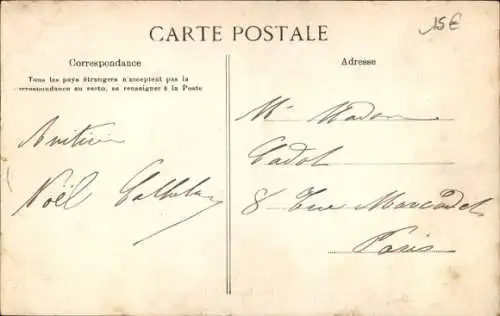 15€
CARTE POSTALE
Correspondance
Tous les pays étrangers n'acceptent pas la
correspondance au recto, se renseigner à la Poste
Noël
Adresse
Mr Madame
Cadot
8 Rue Marcadet
Paris